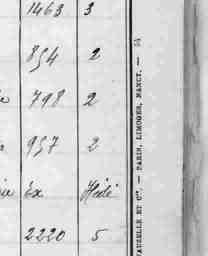 1463 3
854 2
798 2
957 2
Ex
2220 5
VAUZELLE ET Cie. — PARIS, LIMOGES, NANCY. —